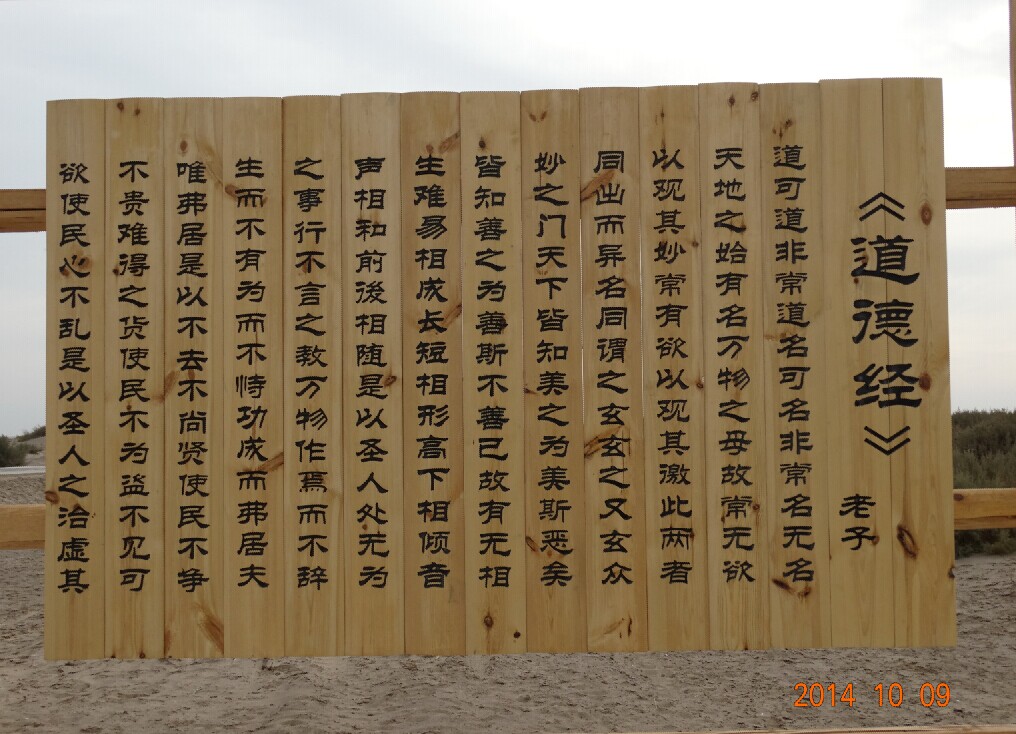 《道德经》
老子
道可道非常道名可名非常名无名
天地之始有名万物之母故常无欲
以观其妙常有欲以观其激此两者
同出而异名同谓之玄玄之又玄众
妙之门天下皆知美之为美斯恶矣
皆知善之为善斯不善已故有无相
生难易相成长短相形高下相倾音
声相和前後相随是以圣人处无为
之事行不言之教万物作焉而不辞
生而不有为而不恃功成而弗居夫
唯弗居是以不去不尚贤使民不争
不贵难得之货使民不为盗不见可
欲使民心不乱是以圣人之治虚其
2014 10 09